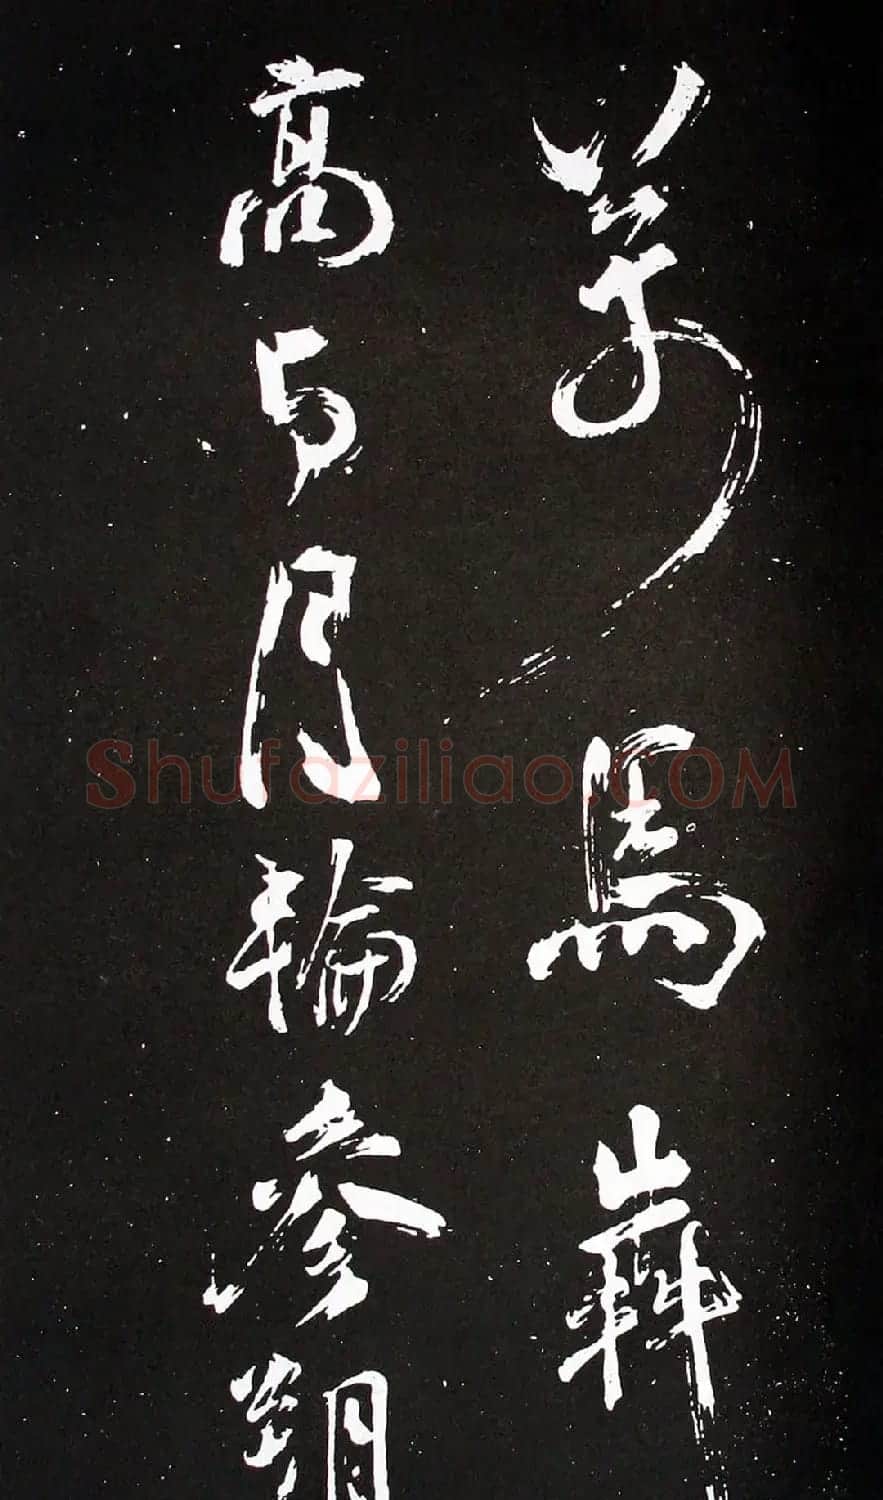 萬馬犇
高与月輪參朔
Shufaziliao.COM